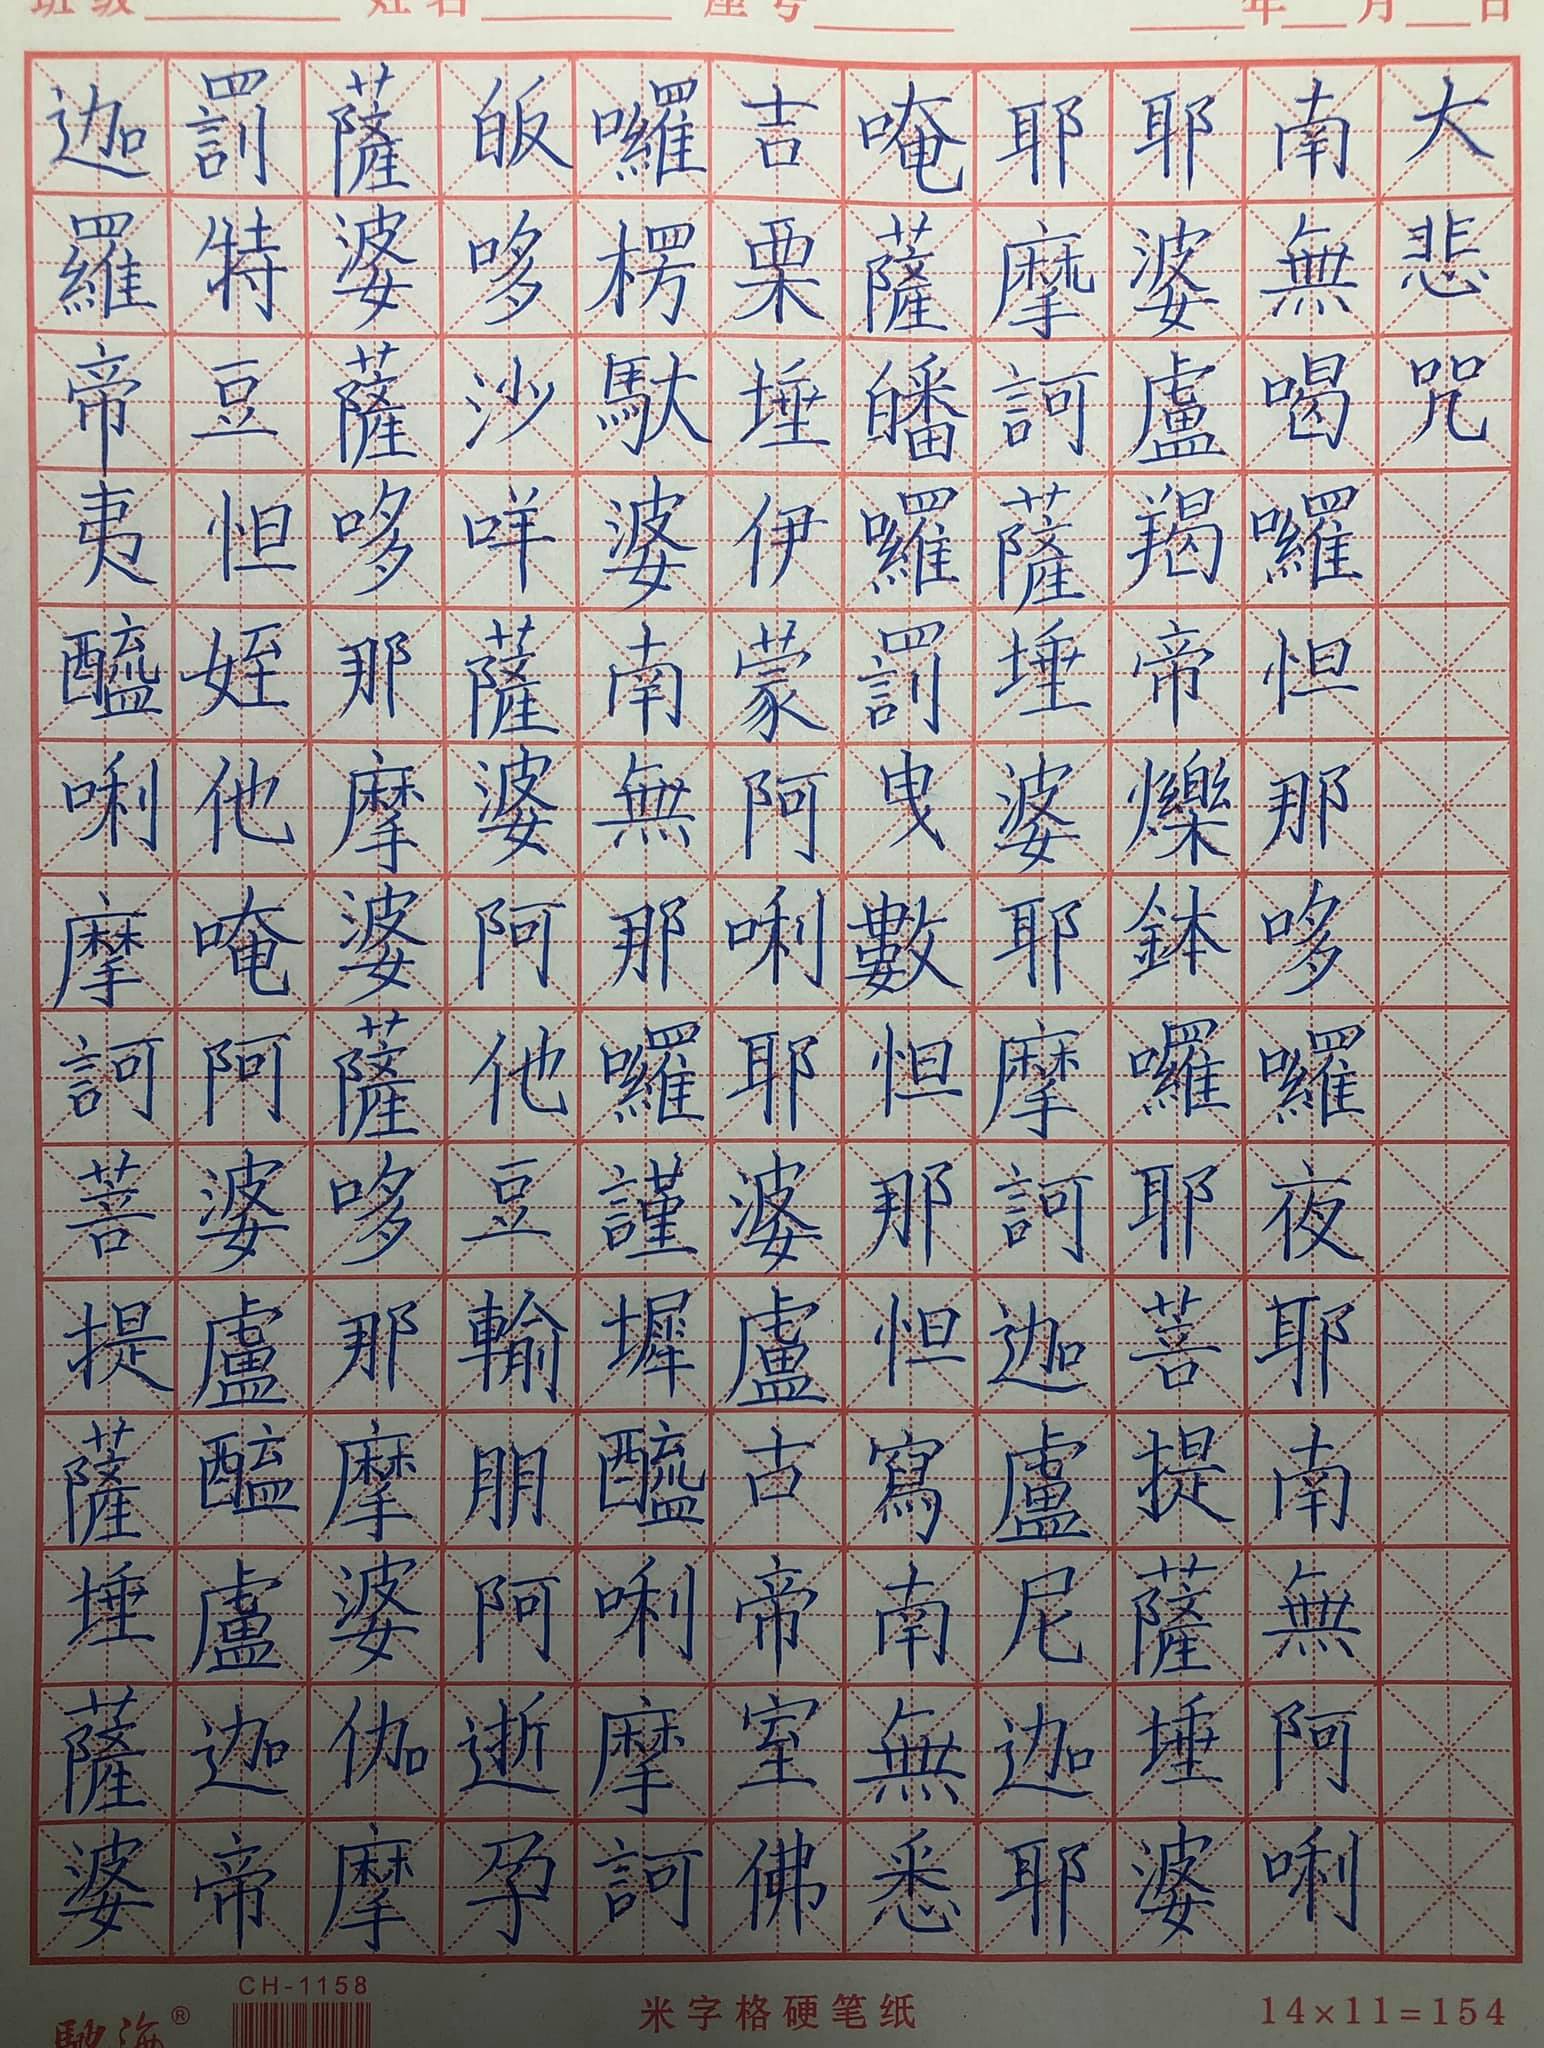 班级 姓名 座号 年 月 日
大悲咒
南無喝囉怛那哆囉夜耶南無阿唎
耶婆盧羯帝爍鉢囉耶菩提薩埵婆
耶摩訶薩埵婆耶摩訶迦盧尼迦耶
唵薩皤囉罰曳數怛那怛寫南無悉
吉栗埵伊蒙阿唎耶婆盧古帝室佛
囉楞馱婆南無那囉謹墀醯唎摩訶
皈哆沙咩薩婆阿他豆輸朋阿逝孕
薩婆薩哆那摩婆薩哆那摩婆伽摩
罰特豆怛姪他唵阿婆盧醯盧迦帝
迦羅帝夷醯唎摩訶菩提薩埵薩婆
CH-1158
馳海®
米字格硬笔纸
14×11=154